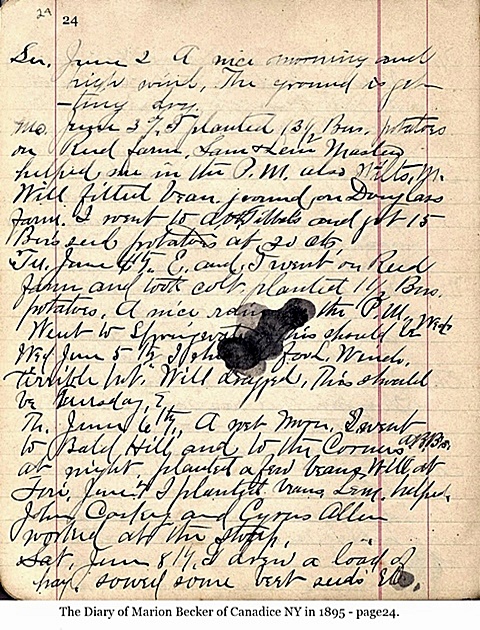 24
24
Su. June 2 A nice morning and
high wind, The ground is get-
-ting dry.
Mo. June 3rd, I planted 13½ Bus. potatoes
on Reed farm. Sam & Lem Masten
helped me in the P.M. also
Will fitted bean ground on Douglass
farm. I went to and got 15
Bus seed potatoes at 20 cts.
Tu, June 4th, E. and I went on Reed
farm and took colt planted 11½ Bus.
potatoes, A nice the P.M., Weds
Went to this should be
Wed June 5th, food. Windy,
terrible hot. Will dragged, This should
be Thursday,
Th. June 6th, A wet morn, I went
to Bald Hill and to the Corners
at night planted a few beans Will, at
Fri, June 7 I planted beans Lem. helped
John and Cyrus Allen
worked at the shop,
Sat, June 8th, I drew a load of
hay, sowed some beet seeds
The Diary of Marion Becker of Canadice NY in 1895 - page24.